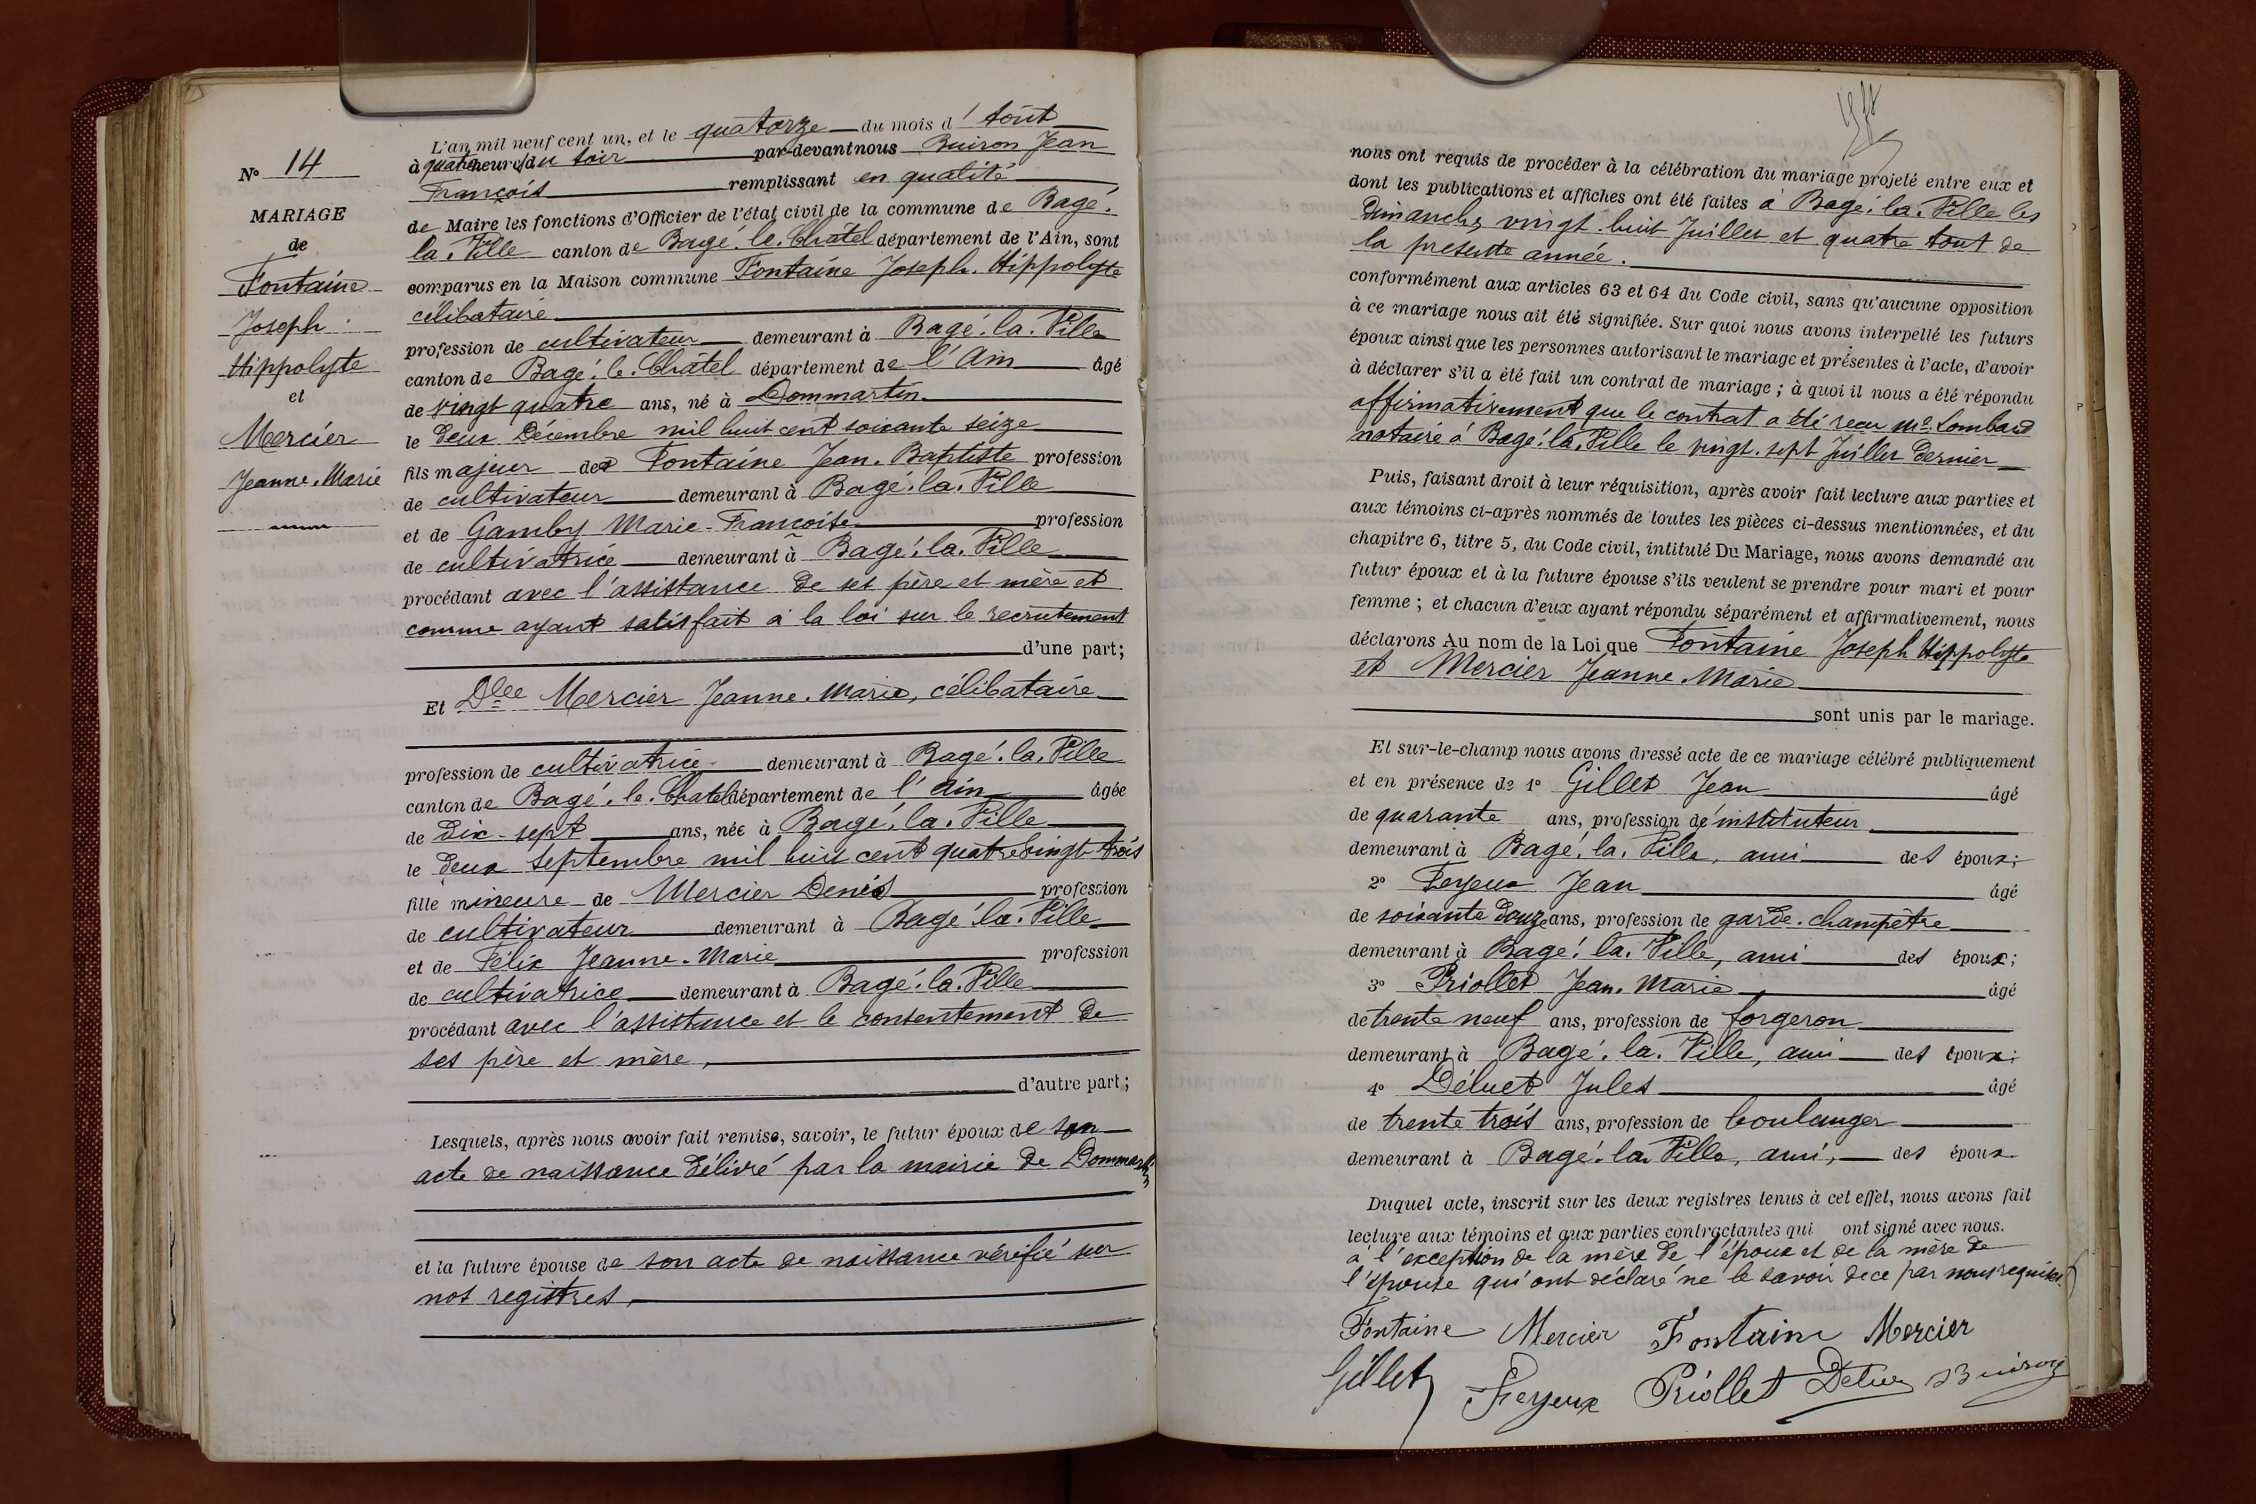 N° 14
MARIAGE
de
Fontaine
Joseph
Hippolyte
et
Mercier
Jeanne-Marie
L'an mil neuf cent un, et le quatorze du mois d'Août
à quatre heures du soir par-devant nous Buiron Jean
François remplissant en qualité
de Maire les fonctions d'Officier de l'état civil de la commune de Bagé-
la-Ville canton de Bagé-le-Châtel département de l'Ain, sont
comparus en la Maison commune Fontaine Joseph-Hippolyte
célibataire
profession de cultivateur demeurant à Bagé-la-Ville
canton de Bagé-le-Châtel département de l'Ain âgé
de vingt quatre ans, né à Dommartin
le deux Décembre mil huit cent soixante seize
fils majeur de Fontaine Jean-Baptiste profession
de cultivateur demeurant à Bagé-la-Ville
et de Gamby Marie-Françoise profession
de cultivatrice demeurant à Bagé-la-Ville
procédant avec l'assistance de ses père et mère et
comme ayant satisfait à la loi sur le recrutement
d'une part;
Et Dlle Mercier Jeanne-Marie, célibataire
profession de cultivatrice demeurant à Bagé-la-Ville
canton de Bagé-le-Chatel département de l'Ain âgée
de dix-sept ans, née à Bagé-la-Ville
le deux Septembre mil huit cent quatre vingt-trois
fille mineure de Mercier Denis profession
de cultivateur demeurant à Bagé-la-Ville
et de Félix Jeanne-Marie profession
de cultivatrice demeurant à Bagé-la-Ville
procédant avec l'assistance et le consentement de
ses père et mère,
d'autre part;
Lesquels, après nous avoir fait remise, savoir, le futur époux de son
acte de naissance délivré par la mairie de Dommartin
et la future épouse de son acte de naissance vérifié sur
nos registres,
nous ont requis de procéder à la célébration du mariage projeté entre eux et
dont les publications et affiches ont été faites à Bagé-la-Ville les
Dimanches vingt-huit Juillet et quatre Août de
la presente année.
conformément aux articles 63 et 64 du Code civil, sans qu'aucune opposition
à ce mariage nous ait été signifiée. Sur quoi nous avons interpellé les futurs
époux ainsi que les personnes autorisant le mariage et présentes à l'acte, d'avoir
à déclarer s'il a été fait un contrat de mariage; à quoi il nous a été répondu
affirmativement que le contrat a été reçu Me Lombard
notaire à Bagé-la-Ville le vingt-sept Juillet dernier
Puis, faisant droit à leur réquisition, après avoir fait lecture aux parties et
aux témoins ci-après nommés de toutes les pièces ci-dessus mentionnées, et du
chapitre 6, titre 5, du Code civil, intitulé Du Mariage, nous avons demandé au
futur époux et à la future épouse s'ils veulent se prendre pour mari et pour
femme; et chacun d'eux ayant répondu séparément et affirmativement, nous
déclarons Au nom de la Loi que Fontaine Joseph Hippolyte
et Mercier Jeanne-Marie
sont unis par le mariage.
Et sur-le-champ nous avons dressé acte de ce mariage célébré publiquement
et en présence de 1° Gillet Jean âgé
de quarante ans, profession d'instituteur
demeurant à Bagé-la-Ville, ami des époux;
2° Feyeux Jean âgé
de soixante douze ans, profession de garde-champêtre
demeurant à Bagé-la-Ville, ami des époux;
3° Priollet Jean-Marie âgé
de trente neuf ans, profession de forgeron
demeurant à Bagé-la-Ville, ami des époux;
4° Déluet Jules âgé
de trente trois ans, profession de boulanger
demeurant à Bagé-la-Ville, ami, des époux
Duquel acte, inscrit sur les deux registres tenus à cet effet, nous avons fait
lecture aux témoins et aux parties contractantes qui ont signé avec nous.
à l'exception de la mère de l'époux et de la mère de
l'épouse qui ont déclaré ne le savoir de ce par nous requises
Fontaine Mercier Fontaine Mercier
Gillet Feyeux Priollet Deluet Buiron